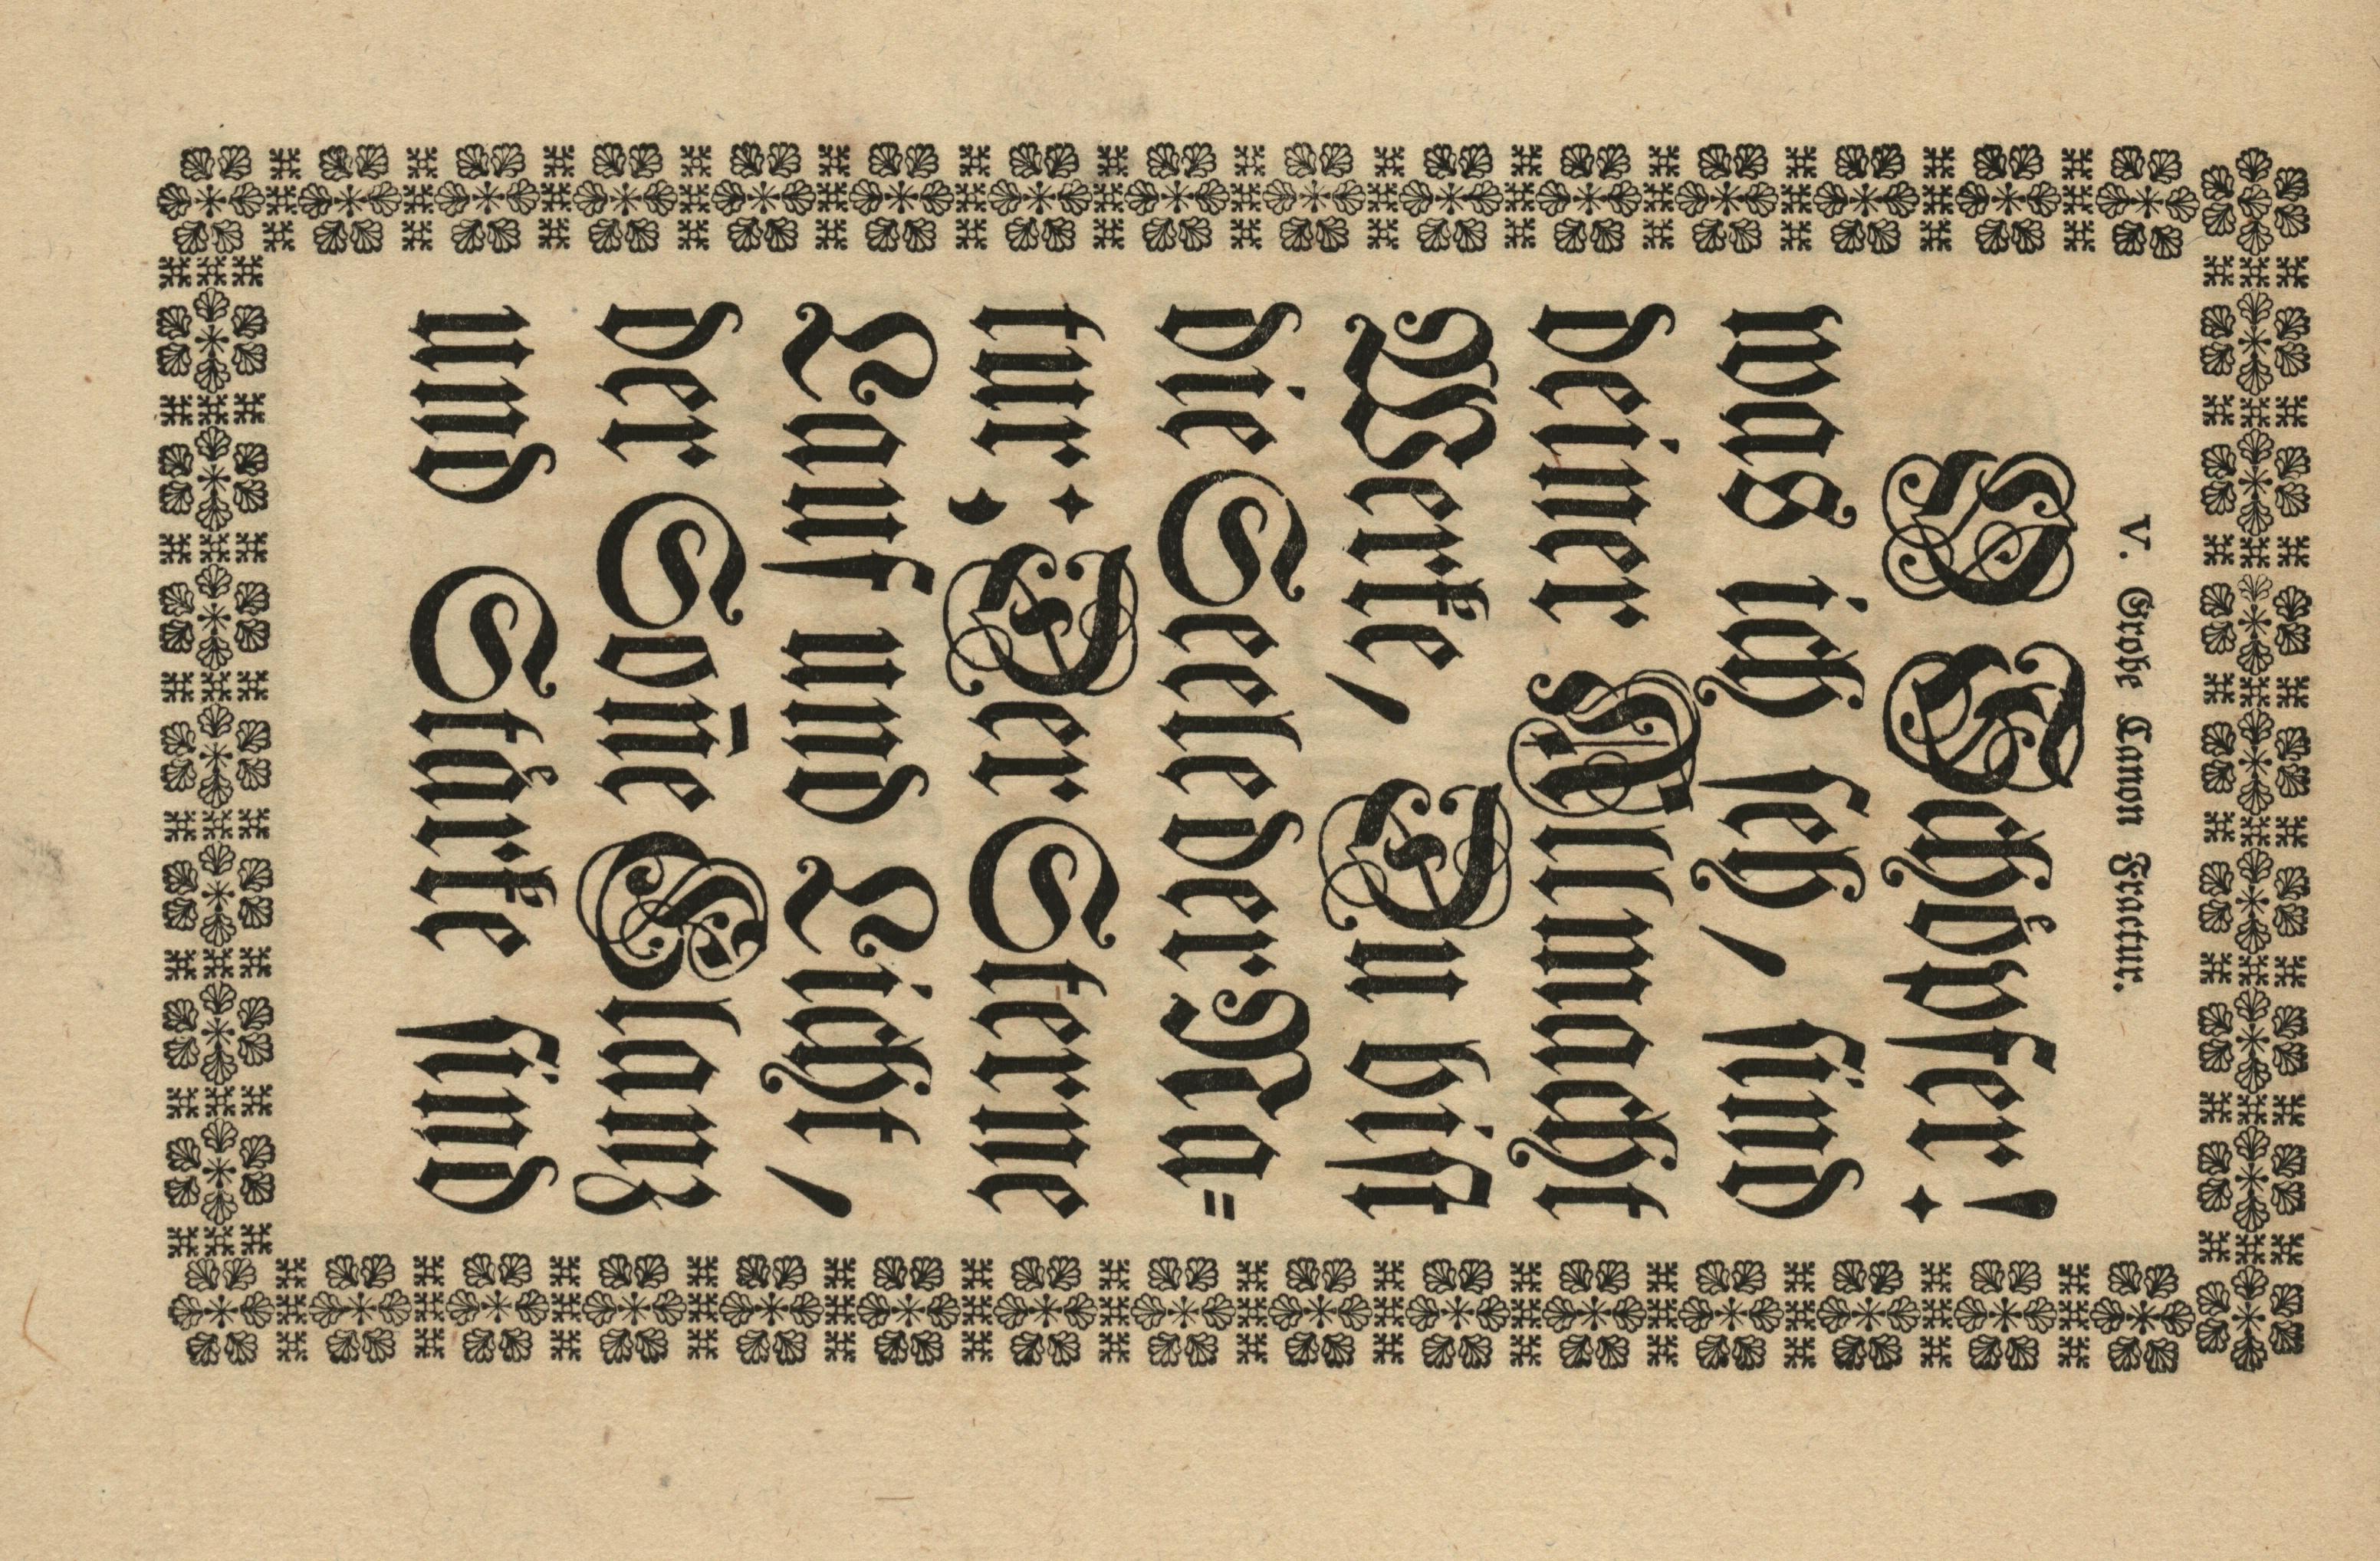 V. Grobe Canon Fractur.
O Schoͤpfer!
was ich ſeh, ſind
deiner Allmacht
Werke, Du biſt
die Seele der Na=
tur; Der Sterne
Lauf und Licht,
der Son̄e Glanz
und Staͤrke ſind